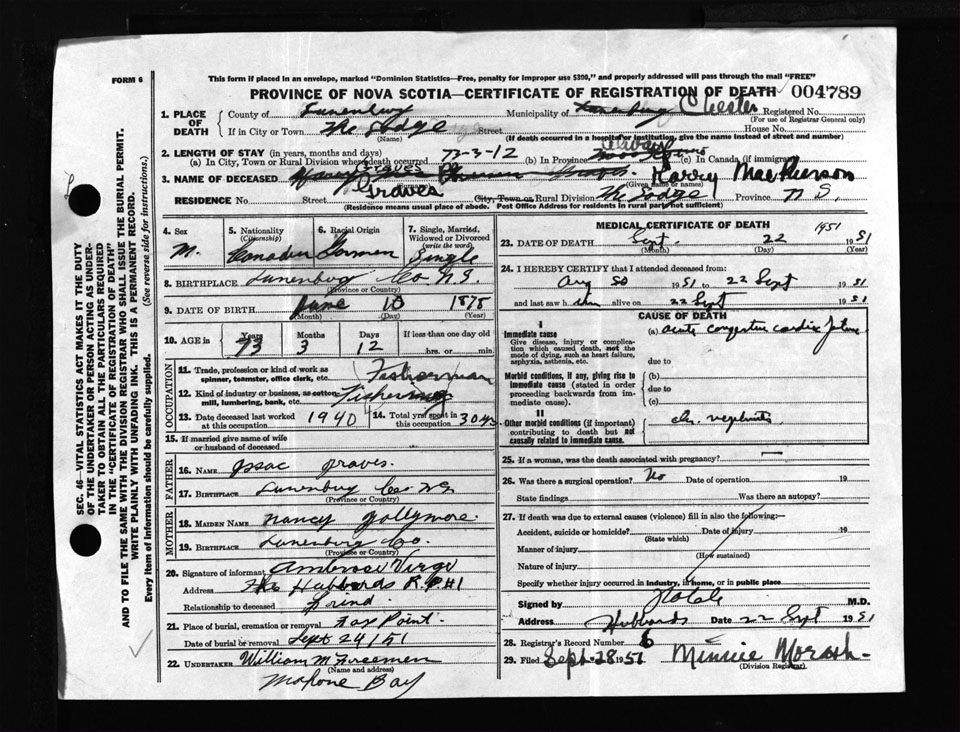 FORM 6
This form if placed in an envelope, marked "Dominion Statistics—Free, penalty for improper use $300," and properly addressed will pass through the mail "FREE"
PROVINCE OF NOVA SCOTIA—CERTIFICATE OF REGISTRATION OF DEATH 004789
1. PLACE OF DEATH
County of Lunenburg Municipality of Lunenburg Chester Registered No.
(For use of Registrar General only)
If in City or Town The Lodge Street House No.
(Name) (If death occurred in a hospital or institution, give the name instead of street and number)
2. LENGTH OF STAY (in years, months and days)
(a) In City, Town or Rural Division where death occurred 73-3-12 (b) In Province (c) In Canada (if immigrant)
3. NAME OF DECEASED Graves Harry MacPherson
(Surname) (Given name or names)
RESIDENCE No. Street City, Town or Rural Division The Lodge Province N S.
(Residence means usual place of abode. Post Office Address for residents in rural parts not sufficient)
4. Sex
M.
5. Nationality
(Citizenship)
Canadian
6. Racial Origin
German
7. Single, Married, Widowed or Divorced
(write the word)
Single
8. BIRTHPLACE Lunenburg Co. N.S.
(Province or Country)
9. DATE OF BIRTH June 10 1878
(Month) (Day) (Year)
10. AGE in
Years Months Days If less than one day old
73 3 12 hrs. or min.
OCCUPATION
11. Trade, profession or kind of work as spinner, teamster, office clerk, etc. Fisherman
12. Kind of industry or business, as cotton mill, lumbering, bank, etc. Fishering
13. Date deceased last worked at this occupation 1940
14. Total yrs. spent in this occupation 30
15. If married give name of wife or husband of deceased
FATHER
16. NAME Issac Graves.
17. BIRTHPLACE Lunenburg Co NS
(Province or Country)
MOTHER
18. MAIDEN NAME Nancy Gollymore.
19. BIRTHPLACE Lunenburg Co.
(Province or Country)
20. Signature of informant Ambrose Virge
Address Hubbards R.R #1
Relationship to deceased Frind
21. Place of burial, cremation or removal Fox Point.
Date of burial or removal Sept 24/51
22. UNDERTAKER William M Freemen
(Name and address)
Mahone Bay
MEDICAL CERTIFICATE OF DEATH
1951
23. DATE OF DEATH Sept. 22 1951
(Month) (Day) (Year)
24. I HEREBY CERTIFY that I attended deceased from:
Aug 30 1951 to 22 Sept 1951
and last saw h im alive on 22 Sept 1951
CAUSE OF DEATH
I
Immediate cause
Give disease, injury or complication which caused death, not the mode of dying, such as heart failure, asphyxia, asthenia, etc.
(a) acute congestive cardiac failure
due to
Morbid conditions, if any, giving rise to immediate cause (stated in order proceeding backwards from immediate cause).
(b)
due to
(c)
II
Other morbid conditions (if important) contributing to death but not causally related to immediate cause.
ch. nephritis
25. If a woman, was the death associated with pregnancy? —
26. Was there a surgical operation? No Date of operation 19
State findings Was there an autopsy?
27. If death was due to external causes (violence) fill in also the following:—
Accident, suicide or homicide? Date of injury 19
(State which)
Manner of injury
(How sustained)
Nature of injury
Specify whether injury occurred in industry, in home, or in public place
Signed by M.D.
Address Hubbards Date 22 Sept 1951
28. Registrar's Record Number 6
29. Filed Sept-28 1951 Minnie Morash
(Division Registrar)
SEC. 46—VITAL STATISTICS ACT MAKES IT THE DUTY
OF THE UNDERTAKER OR PERSON ACTING AS UNDERTAKER TO OBTAIN ALL THE PARTICULARS REQUIRED
IN THE "CERTIFICATE OF REGISTRATION OF DEATH"
AND TO FILE THE SAME WITH THE DIVISION REGISTRAR WHO SHALL ISSUE THE BURIAL PERMIT.
WRITE PLAINLY WITH UNFADING INK. THIS IS A PERMANENT RECORD.
Every item of information should be carefully supplied. (See reverse side for instructions.)